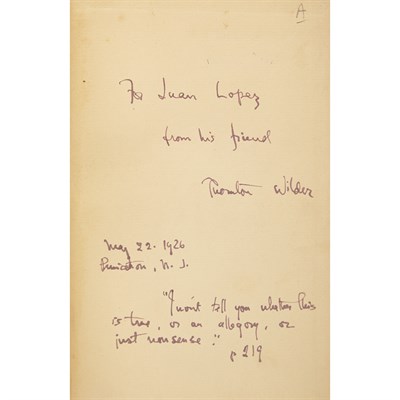 A
To Juan Lopez
from his friend
Thornton Wilder
May 22. 1926
Princeton, N. J.
"I won't tell you whether this
is true, or an allegory, or
just nonsense."
p 219